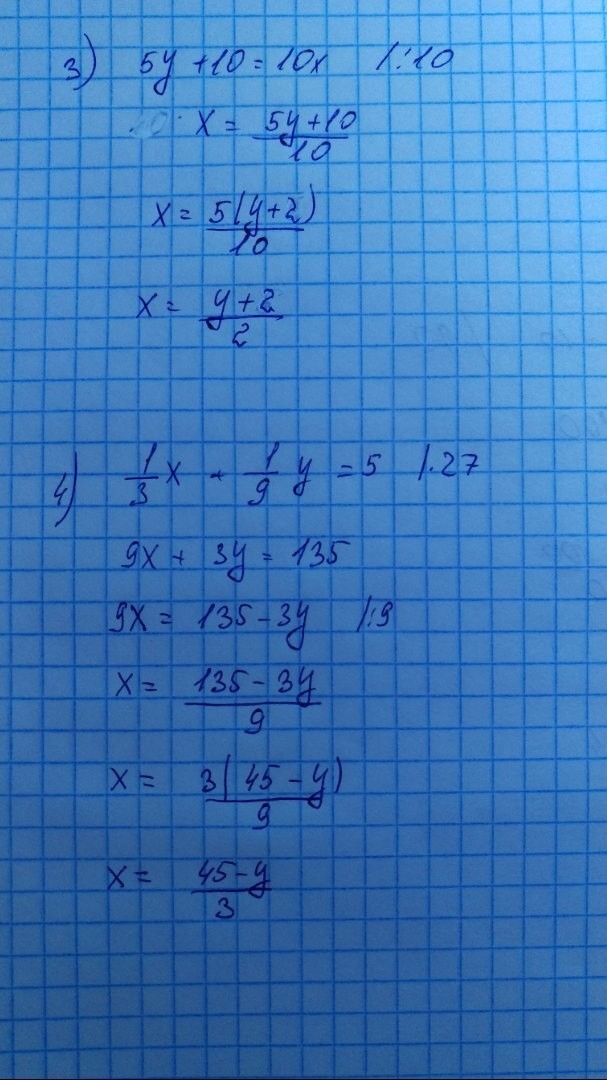 3) 5y + 10 = 10x /:10
x = (5y+10)/10
x = 5(y+2)/10
x = (y+2)/2
4) 1/3 x + 1/9 y = 5 /·27
9x + 3y = 135
9x = 135 - 3y /:9
x = (135 - 3y)/9
x = 3(45 - y)/9
x = (45-y)/3